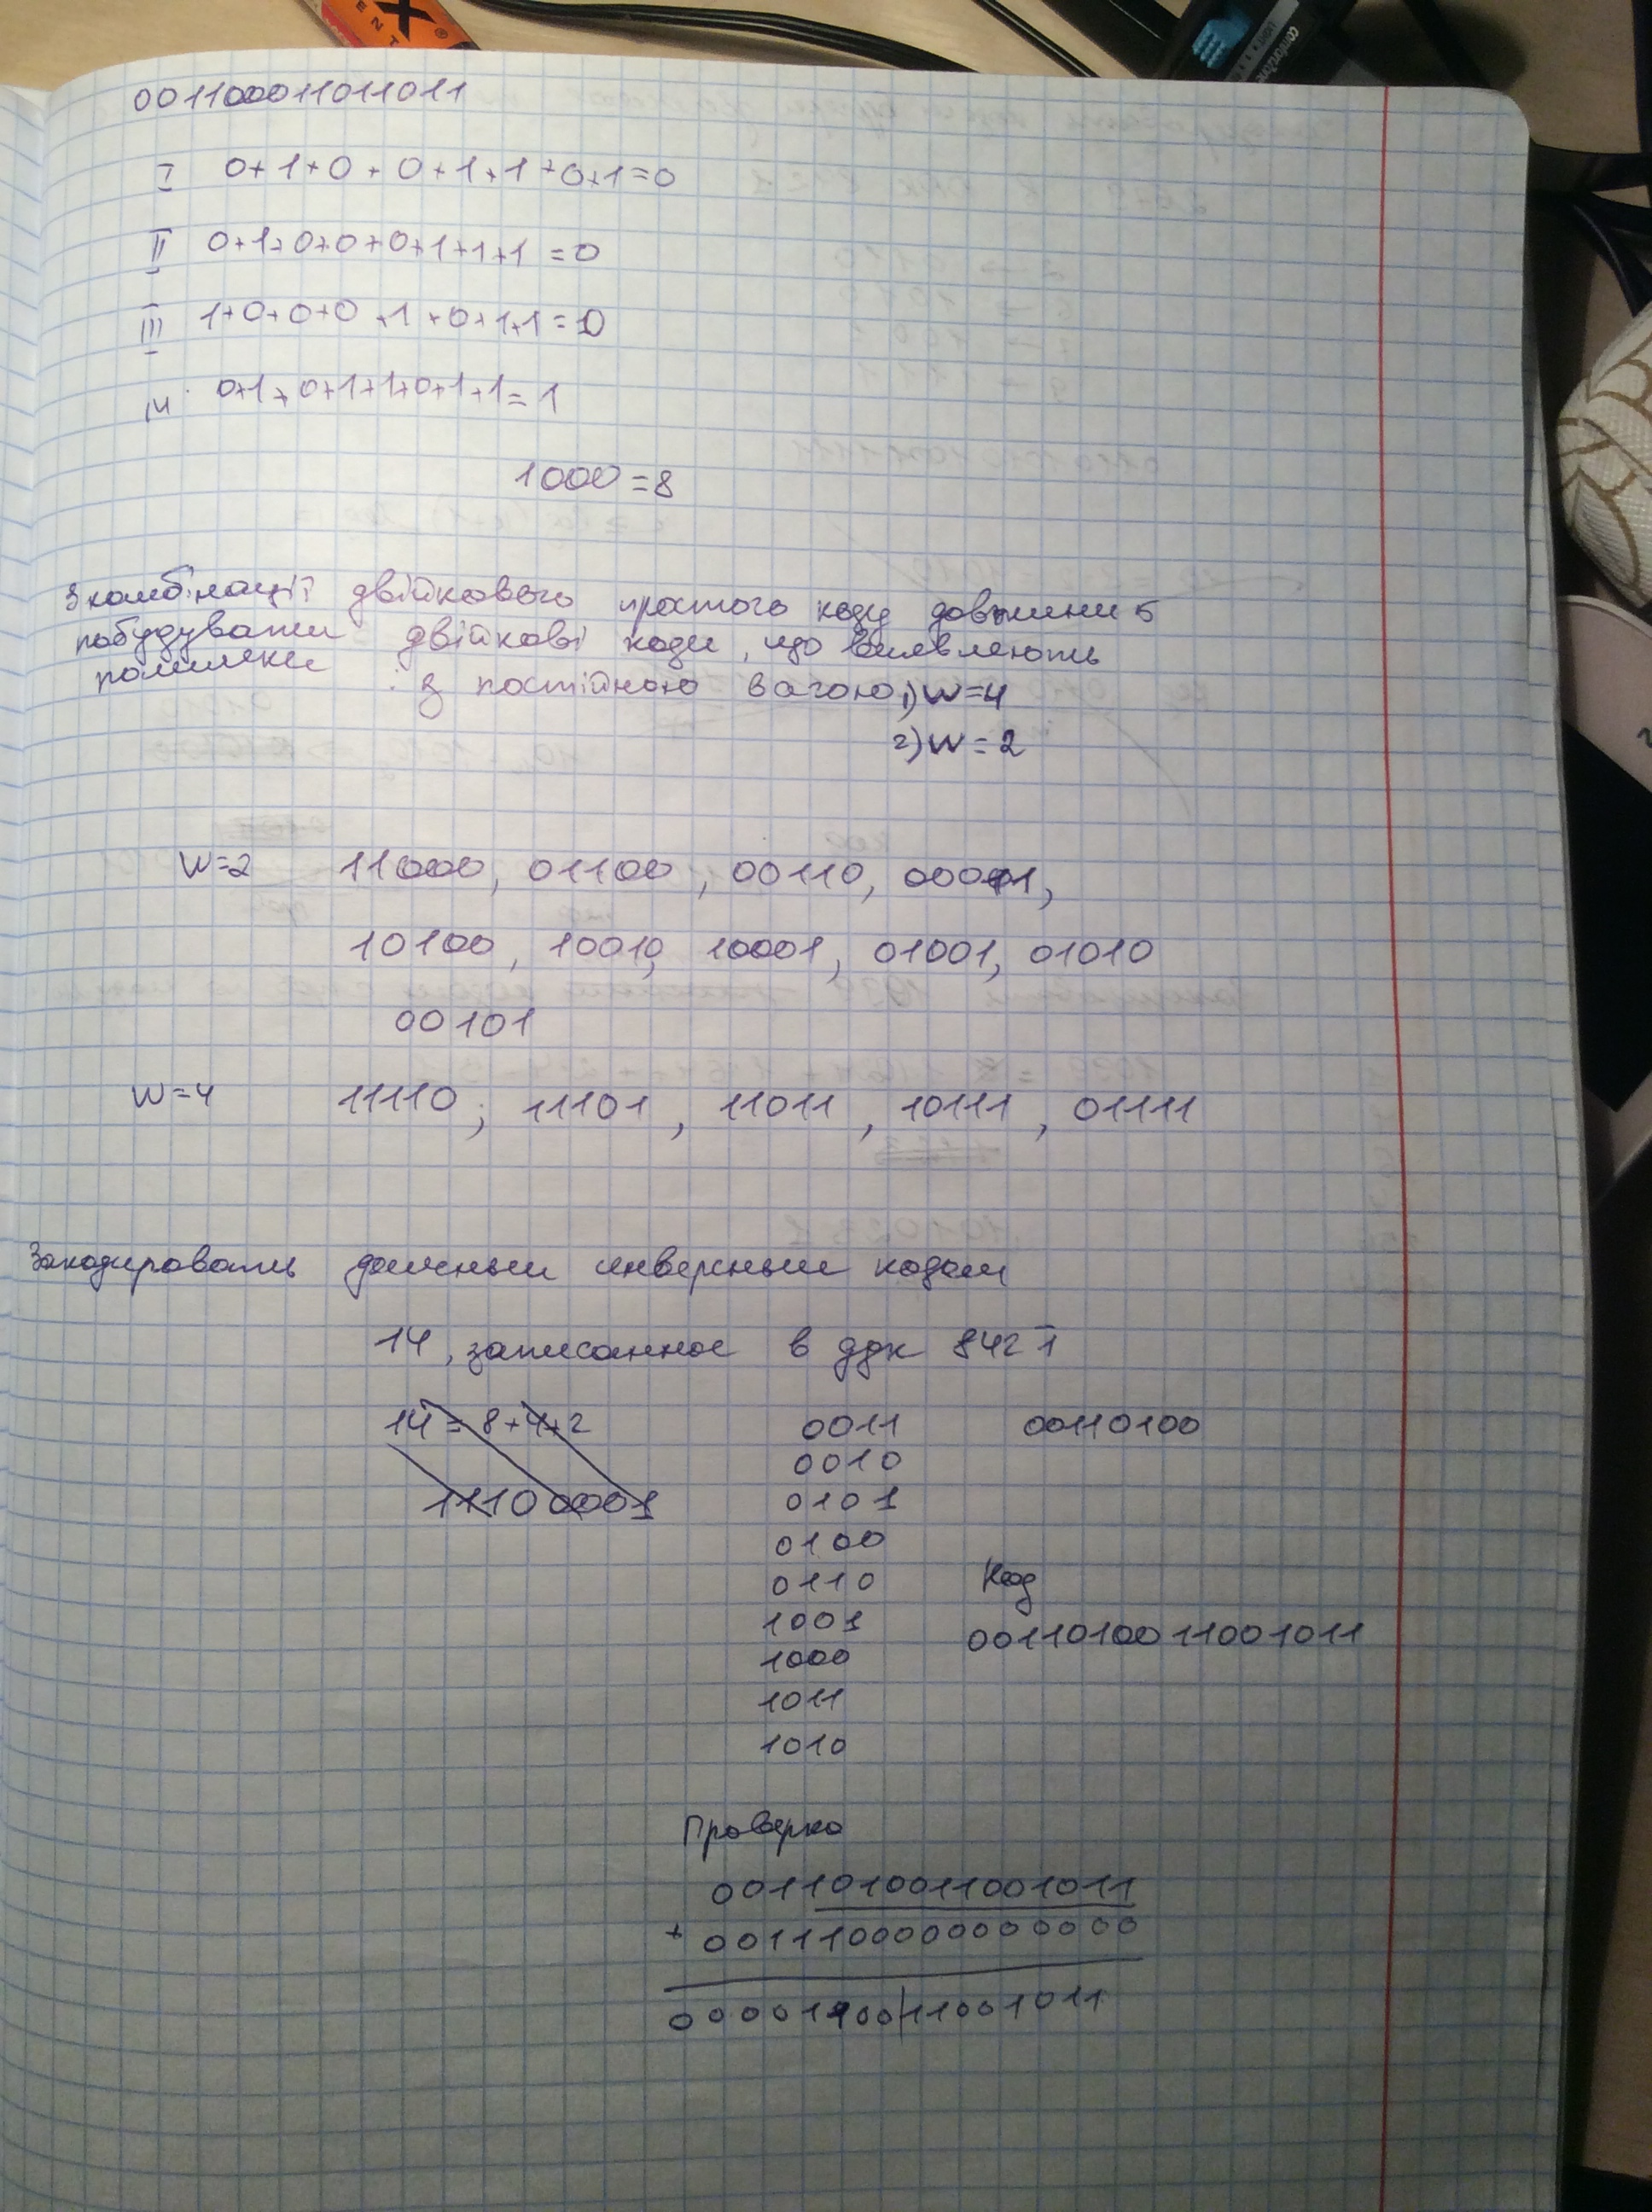 001100011011011
I 0+1+0+0+1+1+0+1=0
II 0+1+0+0+0+1+1+1=0
III 1+0+0+0+1+0+1+1=0
IV 0+1+0+1+1+0+1+1=1
1000=8
З комбінації двійкового простого коду довжини 5
побудувати двійкові коди, що виявляють
помилки : з постійною вагою 1) W=4
2) W=2
W=2 11000, 01100, 00110, 00011,
10100, 10010, 10001, 01001, 01010
00101
W=4 11110; 11101, 11011, 10111, 01111
Закодировать данным инверсным кодом
14, записанное в ддк 8421
14=8+4+2
11100001
0011 00110100
0010
0101
0100
0110 Код
1001
0011010011001011
1000
1011
1010
Проверка
0011010011001011
+ 0011100000000000
0000110011001011